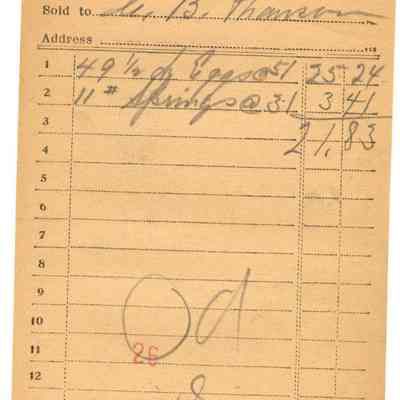 Sold to B.
Address
1 49 ½ dz Eggs @ 51 25 24
2 11 # Springs @ 31 3 41
3 21,83
4
5
6
7
8
9 Od
10
11 26
12